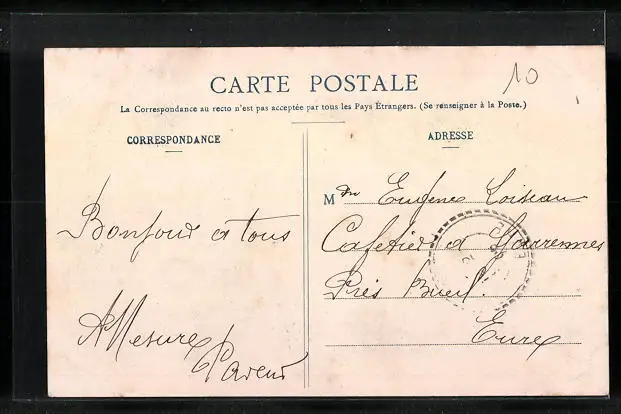 CARTE POSTALE
10
La Correspondance au recto n'est pas acceptée par tous les Pays Étrangers. (Se renseigner à la Poste.)
CORRESPONDANCE
Bonjour a tous
ADRESSE
M Eugene Loiseau
Cafetier a
Près Bueil.
Eure